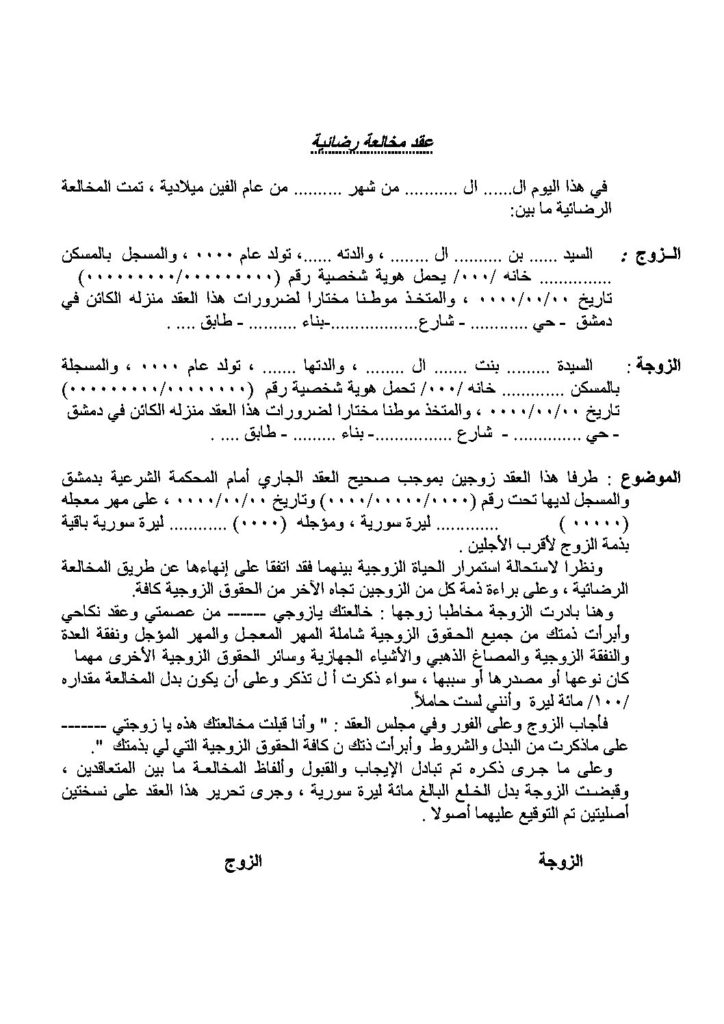 عقد مخالعة رضائية
في هذا اليوم ال...... ال ........... من شهر .......... من عام الفين ميلادية ، تمت المخالعة
الرضائية ما بين:
الـزوج : السيد ...... بن .......... ال ........ ، والدته ......، تولد عام ٠٠٠٠ ، والمسجل بالمسكن
............... خانه /٠٠٠/ يحمل هوية شخصية رقم (٠٠٠٠٠٠٠٠٠/٠٠٠٠٠٠٠٠٠)
تاريخ ٠٠٠٠/٠٠/٠٠ ، والمتخذ موطنا مختارا لضرورات هذا العقد منزله الكائن في
دمشق - حي ............ - شارع..................-بناء .......... - طابق .... .
الزوجة : السيدة ......... بنت ....... ال ........ ، والدتها ....... ، تولد عام ٠٠٠٠ ، والمسجلة
بالمسكن ............. خانه /٠٠٠/ تحمل هوية شخصية رقم (٠٠٠٠٠٠٠٠٠/٠٠٠٠٠٠٠٠)
تاريخ ٠٠٠٠/٠٠/٠٠ ، والمتخذ موطنا مختارا لضرورات هذا العقد منزله الكائن في دمشق
- حي .............. - شارع ................- بناء ......... - طابق .... .
الموضوع : طرفا هذا العقد زوجين بموجب صحيح العقد الجاري أمام المحكمة الشرعية بدمشق
والمسجل لديها تحت رقم (٠٠٠٠/٠٠٠٠٠/٠٠٠٠) وتاريخ ٠٠٠٠/٠٠/٠٠ ، على مهر معجله
(٠٠٠٠٠ ) ............. ليرة سورية ، ومؤجله (٠٠٠٠) ............ ليرة سورية باقية
بذمة الزوج لأقرب الأجلين .
ونظرا لاستحالة استمرار الحياة الزوجية بينهما فقد اتفقا على إنهاءها عن طريق المخالعة
الرضائية ، وعلى براءة ذمة كل من الزوجين تجاه الآخر من الحقوق الزوجية كافة.
وهنا بادرت الزوجة مخاطبا زوجها : خالعتك يازوجي ------ من عصمتي وعقد نكاحي
وأبرأت ذمتك من جميع الحقوق الزوجية شاملة المهر المعجل والمهر المؤجل ونفقة العدة
والنفقة الزوجية والمصاغ الذهبي والأشياء الجهازية وسائر الحقوق الزوجية الأخرى مهما
كان نوعها أو مصدرها أو سببها ، سواء ذكرت أ ل تذكر وعلى أن يكون بدل المخالعة مقداره
/١٠٠/ مائة ليرة وأنني لست حاملاً.
فأجاب الزوج وعلى الفور وفي مجلس العقد : " وأنا قبلت مخالعتك هذه يا زوجتي -------
على ماذكرت من البدل والشروط وأبرأت ذتك ن كافة الحقوق الزوجية التي لي بذمتك ".
وعلى ما جرى ذكره تم تبادل الإيجاب والقبول وألفاظ المخالعة ما بين المتعاقدين ،
وقبضت الزوجة بدل الخلع البالغ مائة ليرة سورية ، وجرى تحرير هذا العقد على نسختين
أصليتين تم التوقيع عليهما أصولا .
الزوجة الزوج